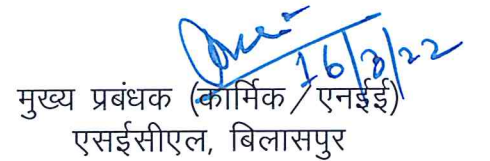 16/3/22
मुख्य प्रबंधक (कार्मिक / एनईई)
एसईसीएल, बिलासपुर